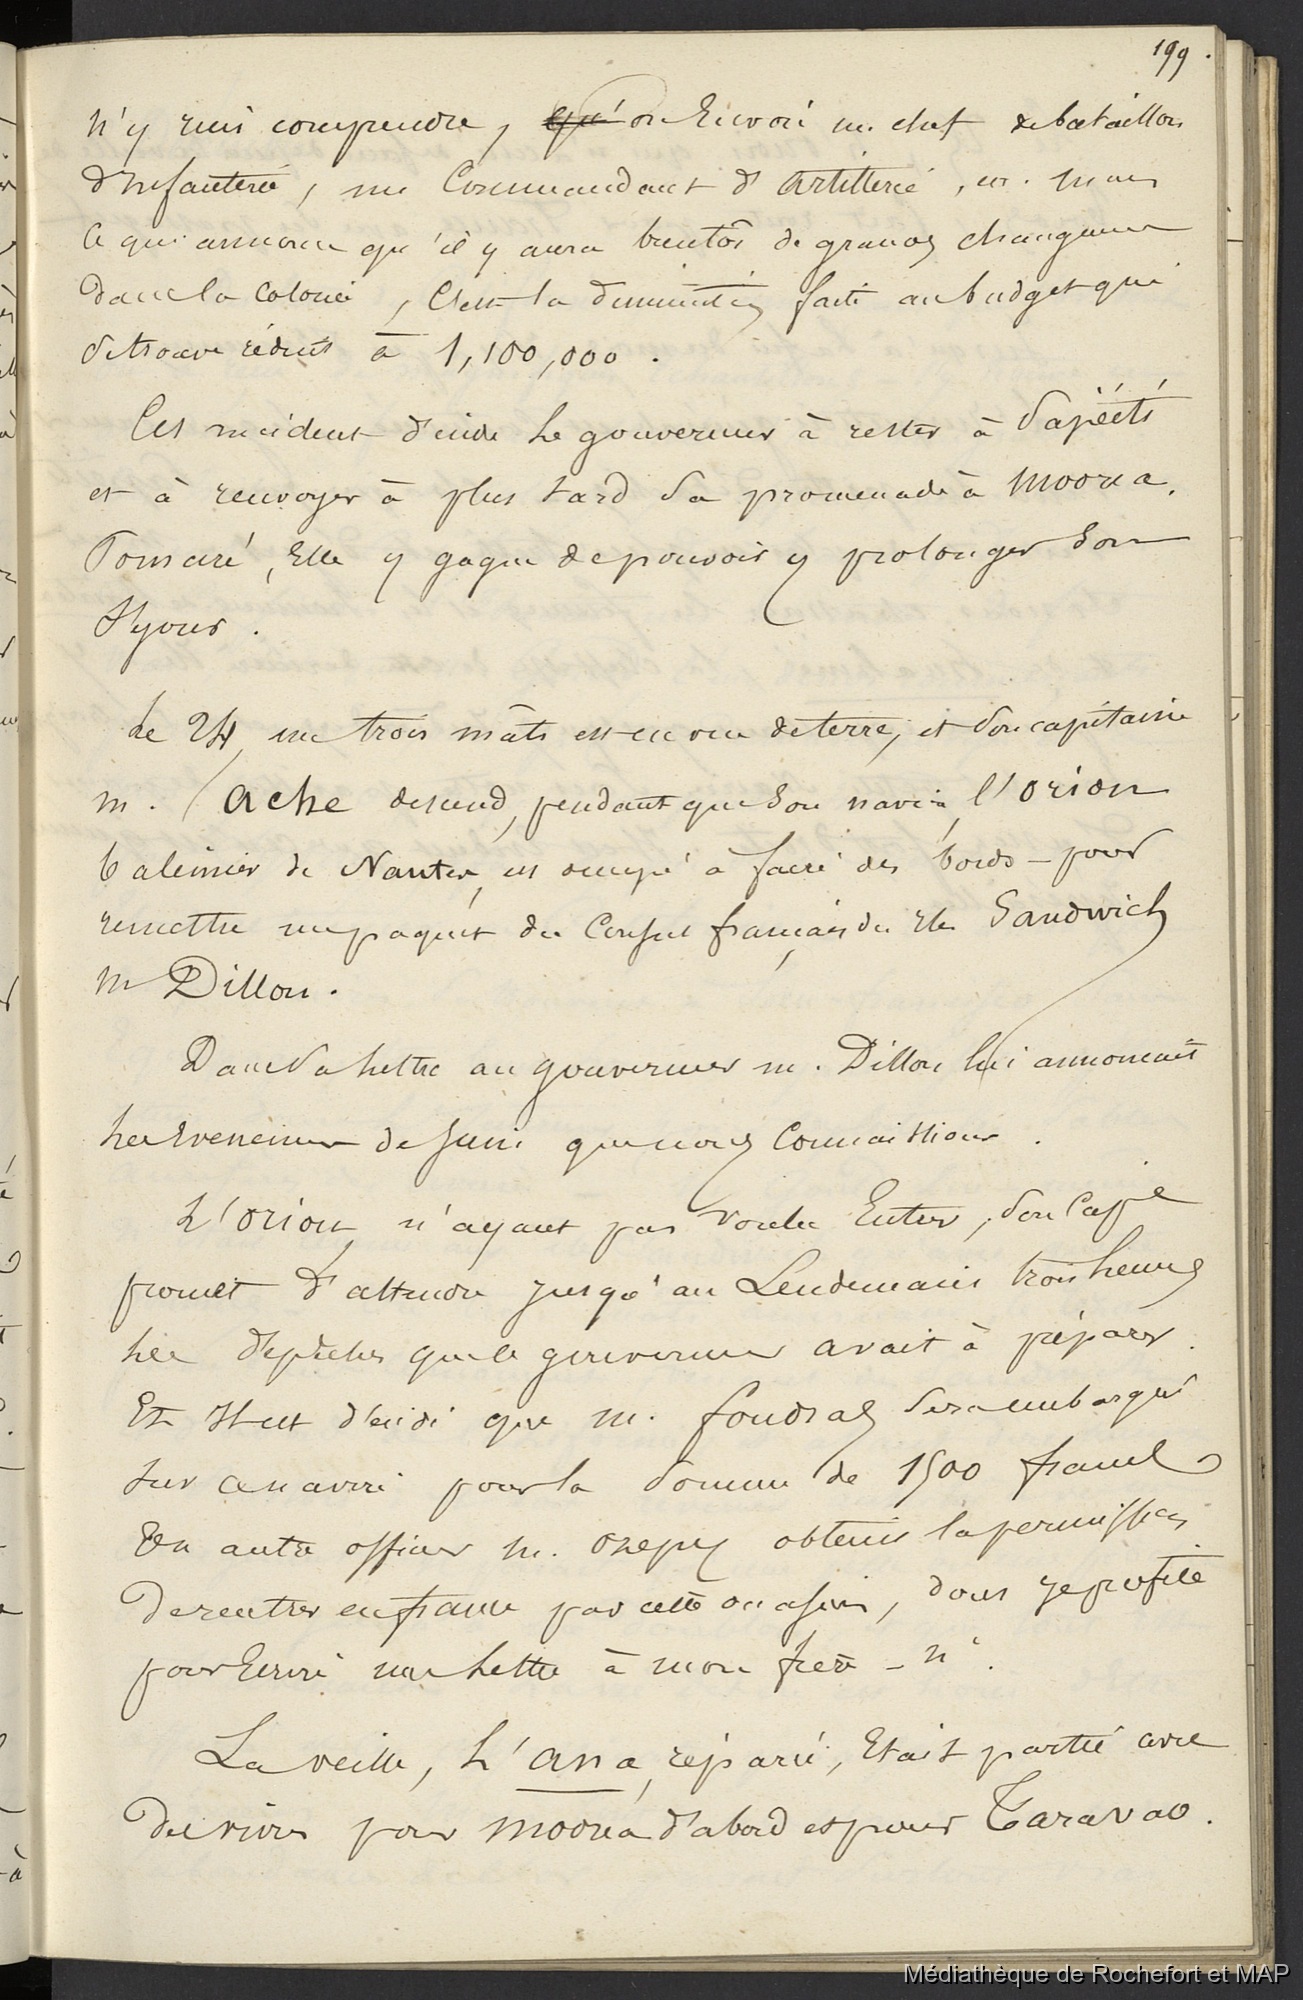 199.
n'y rien comprendre, qu' on Envoie un chef de bataillon
d'Infanterie, un Commandant d'Artillerie, mais
ce qui annonce qu'il y aura bientôt de grands changemens
dans la Colonie, C'est la diminution faite au budget qui
se trouve réduit à 1,100,000.
Cet incident décide le gouverneur à rester à Papéété
et à renvoyer à plus tard sa promenade à Moorea.
Pomaré, Elle y gagne de pouvoir y prolonger son
séjour.
Le 24, un trois mâts est en vue de terre, et son capitaine
m. Ache descend, pendant que son navire, l'Orion
baleinier de Nantes, est occupé à faire des bords - pour
remettre un paquet du Consul français des Iles Sandwich
m Dillon.
Dans sa lettre au gouverneur m. Dillon lui annonçait
les Evenemens de Juin que nous Connaissions.
L'Orion n'ayant pas voulu Entrer, son Cap.e
promet d'attendre jusqu'au Lendemain trois heures
les dépêches que le gouverneur avait à préparer.
Et Il est décidé que m. fondras sera embarqué
sur ce navire pour la somme de 1500 francs
Un autre officier m. obtient la permission
de rentrer en france par cette occasion, dont je profite
pour Ecrire une lettre à mon frère - n°.
La veille, L'Ana, réparée, Etait partie avec
des vivres pour Moorea d'abord et pour Taravao.
Médiathèque de Rochefort et MAP